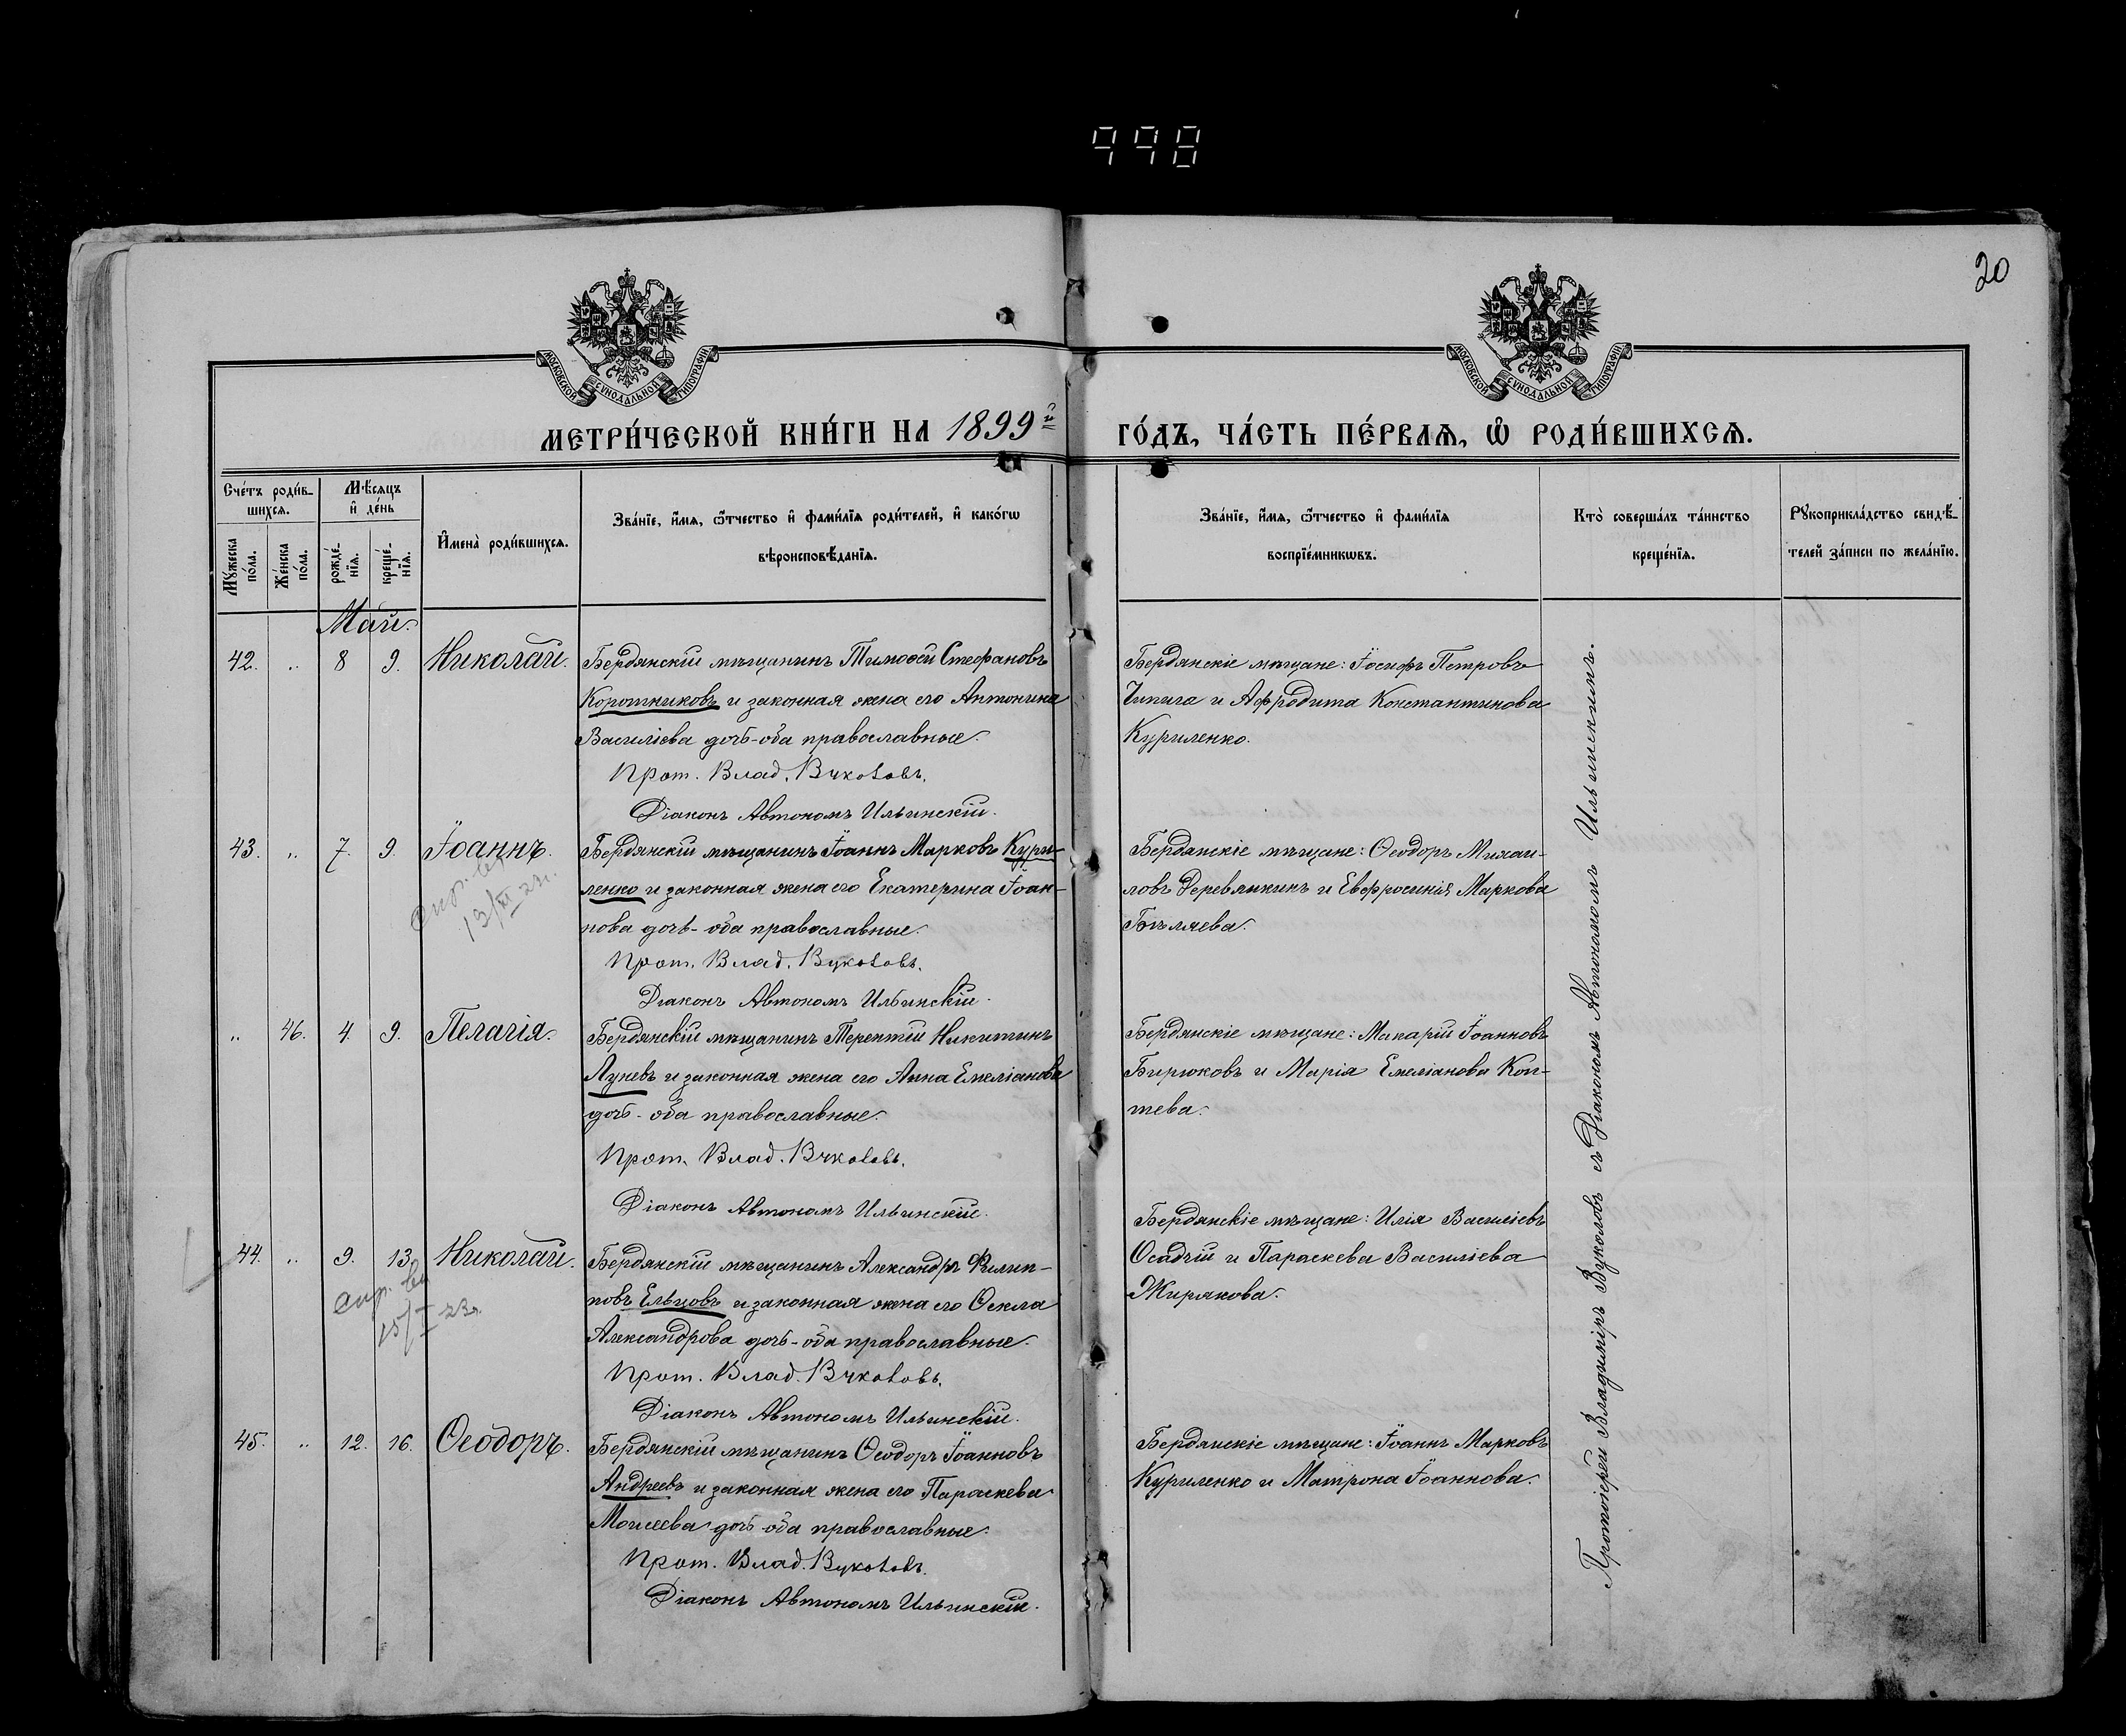 998
20
МОСКОВСКОЙ СУНОДАЛЬНОЙ ТИПОГРАФІИ
МОСКОВСКОЙ СУНОДАЛЬНОЙ ТИПОГРАФІИ
МЕТРИ́ЧЕСКОЙ КНИ́ГИ НА 1899й ГО́ДЪ, ЧА́СТЬ ПЕ́РВАѦ, Ѡ҆ РОДИ́ВШИХСѦ.
Сче́тъ роди́в-
шихсѧ.
Мꙋ́жеска по́ла.
Же́нска по́ла.
Мѣ́сѧцъ и҆ де́нь
рожде́-
нїѧ.
креще́-
нїѧ.
И҆мена̀ роди́вшихсѧ.
Зва́нїе, и҆́мѧ, ѻ҆́тчество и҆ фами́лїѧ роди́телей, и҆ како́гѡ
вѣроисповѣ́данїѧ.
Зва́нїе, и҆́мѧ, ѻ҆́тчество и҆ фами́лїѧ
воспрїе́мникѡвъ.
Кто̀ соверша́лъ та́инство
креще́нїѧ.
Рꙋкоприкла́дство свидѣ́-
телей за́писи по жела́нїю.
Май.
42. „ 8 9. Николай.
Бердянскій мѣщанинъ Тимоѳей Стефановъ
Коротниковъ и законная жена его Антонина
Василіева дочь - оба православные.
Прот. Влад. Вуколовъ.
Діаконъ Автономъ Ильинскій.
Бердянскіе мѣщане: Іосифъ Петровъ
Чипига и Афродита Константинова
Куриленко.
43. „ 7. 9. Іоаннъ.
13/XI 23г.
Бердянскій мѣщанинъ Іоаннъ Марковъ Кури-
ленко и законная жена его Екатерина Іоан-
нова дочь - оба православные.
Прот. Влад. Вуколовъ.
Діаконъ Автономъ Ильинскій.
Бердянскіе мѣщане: Ѳеодоръ Михаи-
ловъ Деревянкинъ и Евфросинія Маркова
Бѣляева.
„ 46. 4. 9. Пелагія.
Бердянскій мѣщанинъ Терентій Никитинъ
Луневъ и законная жена его Анна Емеліанова
дочь - оба православные.
Прот. Влад. Вуколовъ.
Діаконъ Автономъ Ильинскій.
Бердянскіе мѣщане: Макарій Іоанновъ
Бирюковъ и Марія Емеліанова Коп-
тева.
44. „ 9. 13. Николай.
Бердянскій мѣщанинъ Александръ Филип-
повъ Ельцовъ и законная жена его Ѳекла
Александрова дочь - оба православные.
Прот. Влад. Вуколовъ.
Діаконъ Автономъ Ильинскій.
Бердянскіе мѣщане: Илія Василіевъ
Осадчій и Параскева Василіева
Жирякова.
45. „ 12. 16. Ѳеодоръ.
Бердянскій мѣщанинъ Ѳеодоръ Іоанновъ
Андреевъ и законная жена его Параскева
Моисеева дочь - оба православные.
Прот. Влад. Вуколовъ.
Діаконъ Автономъ Ильинскій.
Бердянскіе мѣщане: Іоаннъ Марковъ
Куриленко и Матрона Іоаннова.
Протоіерей Владиміръ Вуколовъ съ Діакономъ Автономомъ Ильинскимъ.